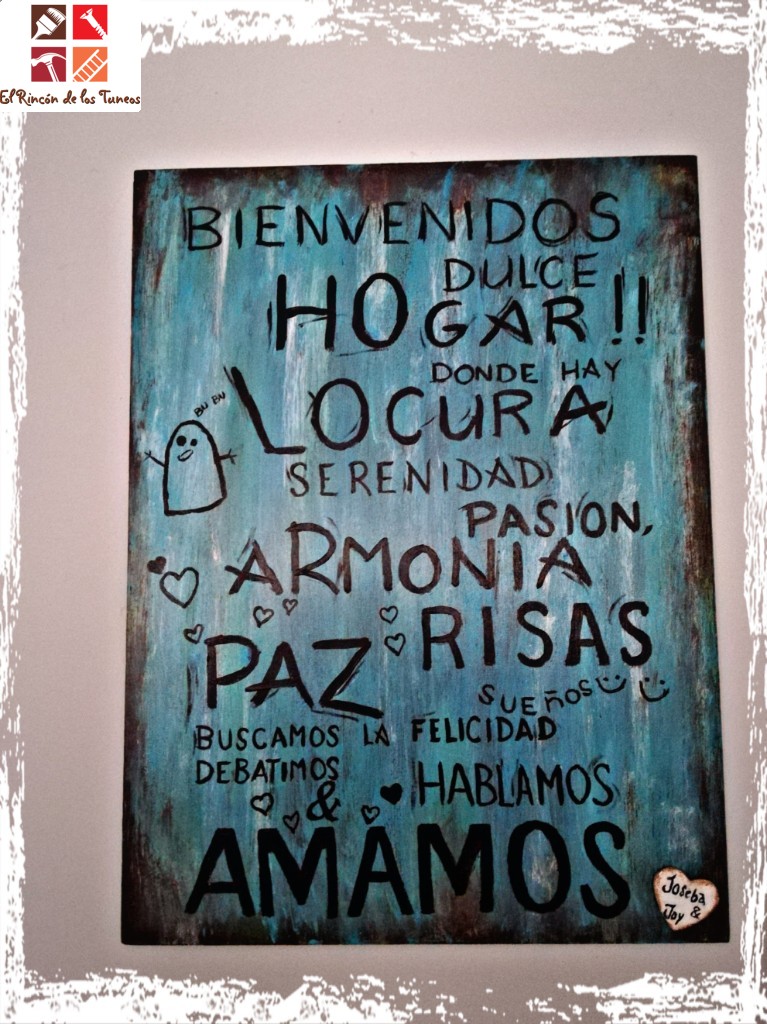 El Rincón de los Tuneos
BIENVENIDOS
DULCE
HOGAR!!
DONDE HAY
LOCURA
BU BU
SERENIDAD
PASION,
ARMONIA
RISAS
PAZ
SUEÑOS
BUSCAMOS LA FELICIDAD
DEBATIMOS
& HABLAMOS
AMAMOS
Joseba
& Joy